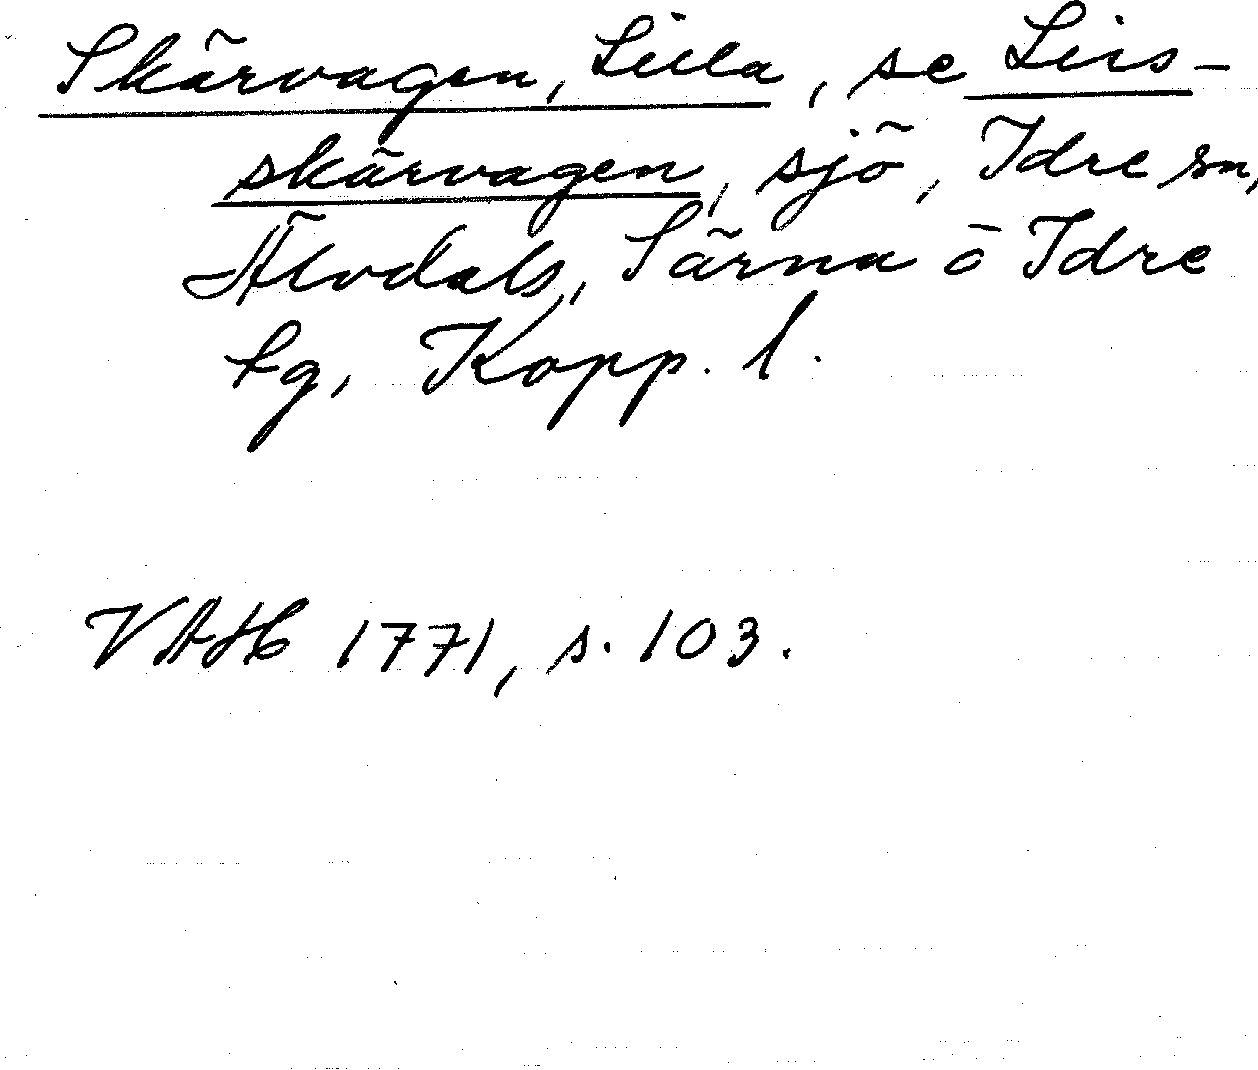 Skärvagen, Lilla, se Lis-
skärvagen, sjö, Idre sn,
Älvdals, Särna o Idre
tg, Kopp. l.
VAH 1771, s. 103.